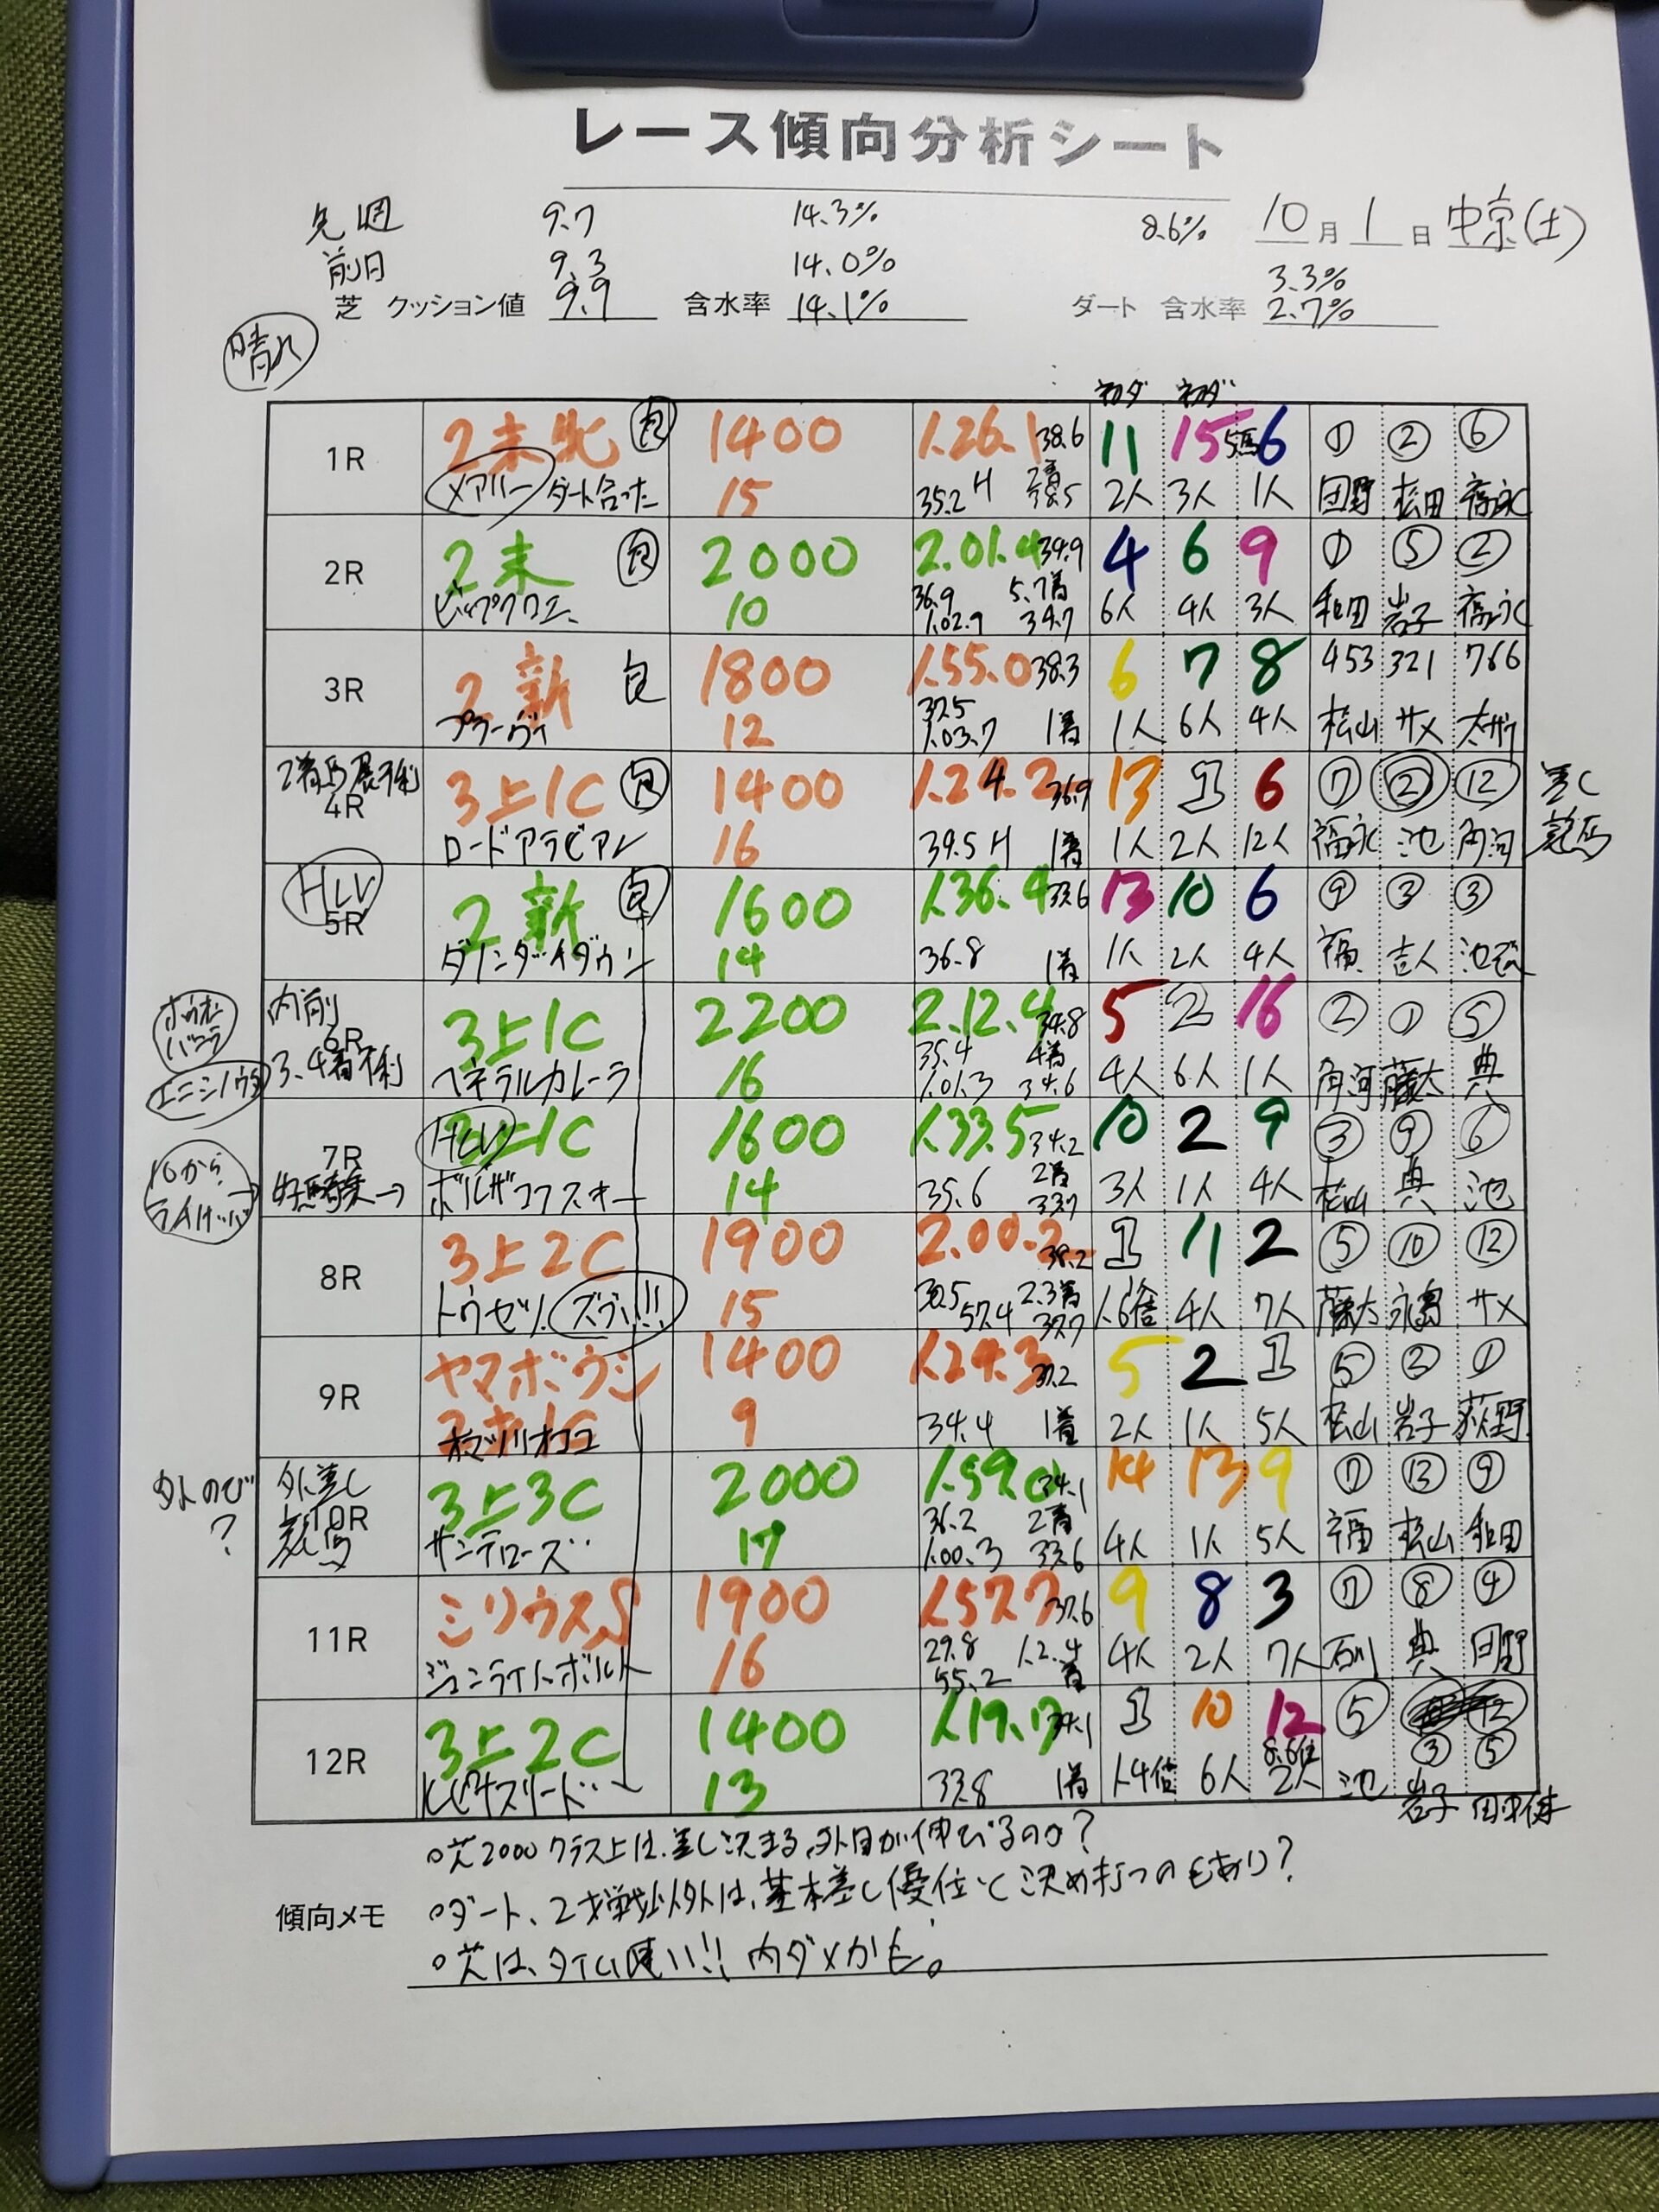 レース傾向分析シート
先週 9.7 14.3% 8.6% 10月1日 中京(土)
前日 9.3 14.0% 3.3%
芝 クッション値 9.9 含水率 14.1% ダート 含水率 2.7%
晴れ
初ダ 初ダ
1R 2未牝 1400 1.26.1 38.6 11 15 6 ① ② ⑥
メアリー ダート合った 15 35.2 H 2人 3人 1人 団野 松田 福永
2R 2未 2000 2.01.4 34.9 4 6 9 ① ⑤ ②
ビップクロエ 10 36.9 5.7着 6人 4人 3人 和田 岩子 福永
1.02.9 34.7
3R 2新 1800 1.55.0 38.3 6 7 8 453 321 766
12 37.5 1人 6人 4人 松山 サメ
1.03.7 1着
2着馬展不利
4R 3上1C 1400 1.24.2 36.9 13 1 6 ⑦ ② ⑫ 差し
ロードアラビアン 16 1着 1人 2人 12人 福永 池 角河
HLV
5R 2新 1600 1.36.4 33.6 13 10 6 ⑨ ③ ③
14 36.8 1着 1人 2人 4人 福 吉人
内前
6R 3上1C 2200 2.12.4 34.8 5 2 16 ② ① ⑤
3、4着不利 16 35.4 4着 4人 6人 1人 角河 藤太 典
1.01.3 34.6
7R 3上1C 1600 1.33.5 34.2 10 2 9 ③ ⑨ ⑥
HLV 14 35.6 2着 3人 1人 4人 松山 典 池
33.7
16から
8R 3上2C 1900 2.00.2 38.2 1 11 2 ⑤ ⑩ ⑫
トウセツ ズブい!! 15 30.5 2.3着 4人 7人 藤太 永島 サメ
57.4 37.7
9R ヤマボウシ 1400 1.24.3 37.2 5 2 1 ⑤ ② ①
オマツリオココ 9 34.4 1着 2人 1人 5人 松山 岩子 荻野
外のび?
外差し
10R 3上3C 2000 1.59.0 34.1 14 13 9 ⑦ ⑬ ⑨
サンテローズ 17 36.2 2着 4人 1人 5人 福 松山 和田
1.00.3 33.6
11R ミリウスS 1900 1.57.7 37.6 9 8 3 ⑦ ⑧ ④
ジュンライトボルト 16 29.8 1.2.4着 4人 2人 7人 石川 典 団野
55.2
12R 3上2C 1400 1.19.7 34.1 1 10 12 ⑤ ③ ⑤
13 33.8 1着 6人 2人 池 岩子 田中健
傾向メモ
○芝2000クラス上は、差し決まる、外目が伸びるのか?
○ダート、2才戦以外は、基本差し優位と決め打つのもあり?
○芝は、タイム速い!! 内ダメかも。